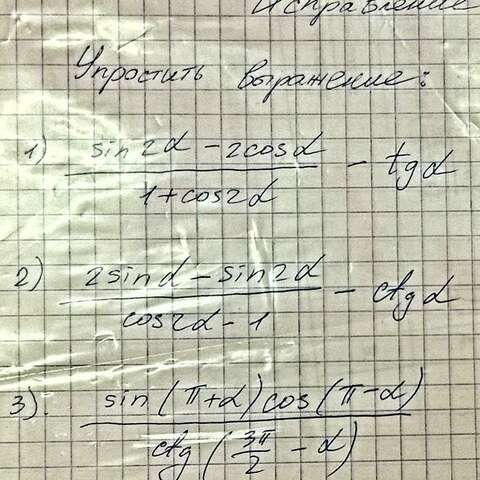 Исправление
Упростить выражение:
1) (sin2α - 2cosα)/(1 + cos2α) - tgα
2) (2sinα - sin2α)/(cos2α - 1) - ctgα
3). (sin(π+α)cos(π-α))/(ctg(3π/2 - α))